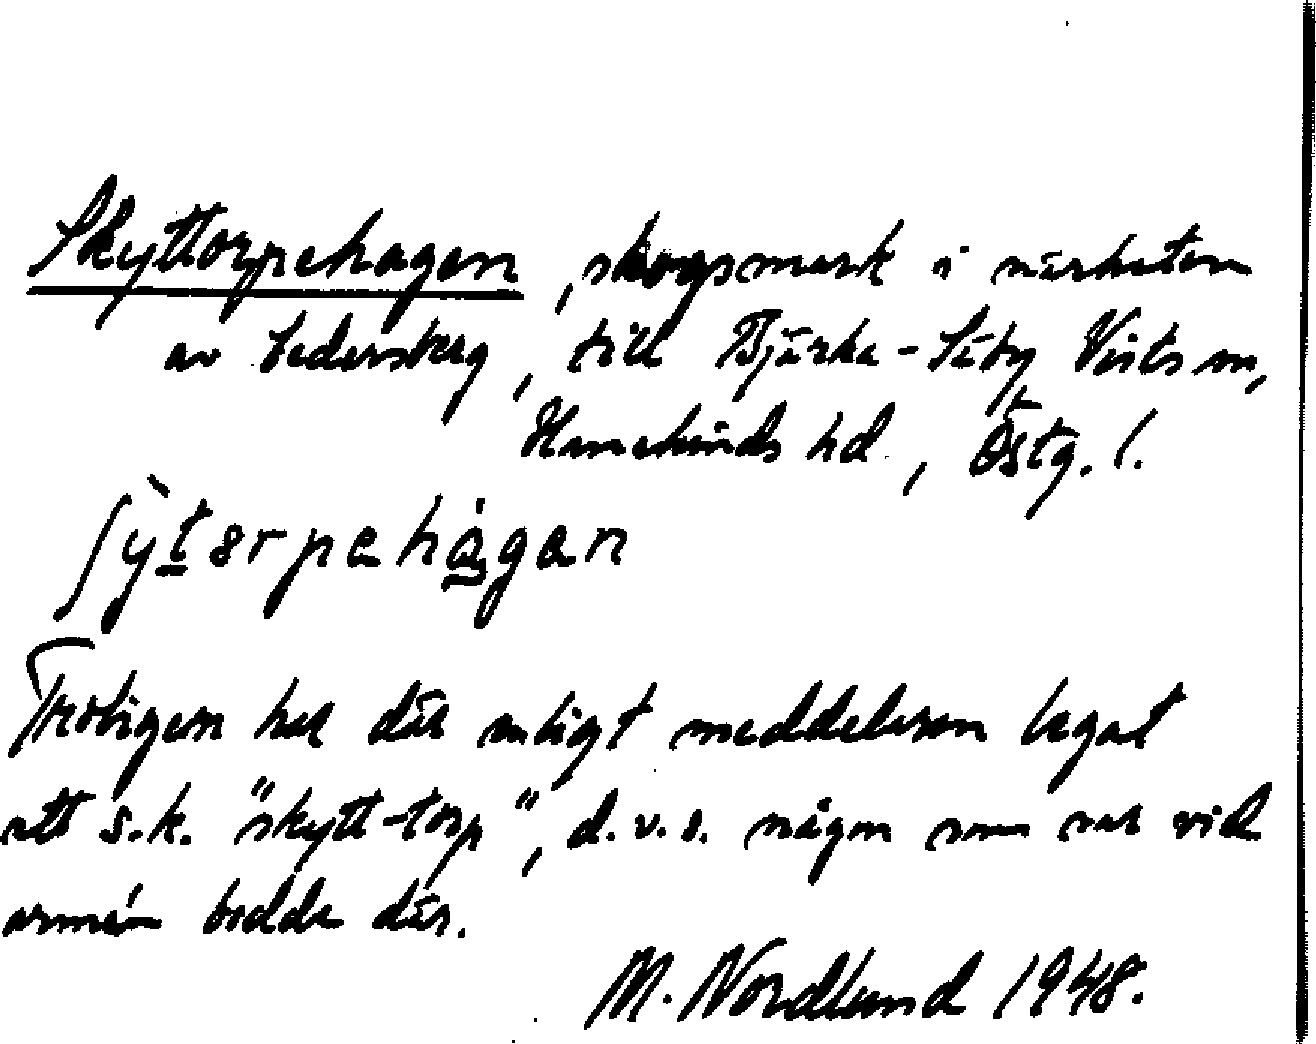 Skyttorpehagen, skogsmark i närheten
av Ledersberg, till Bjärka-Säby Vists sn,
Hanekinds hd., Östg. l.
Troligen har där enligt meddelaren legat
ett s.k. "skytt-torp", d.v.s. någon som var vid
armén bodde där.
M. Nordlund 1948.